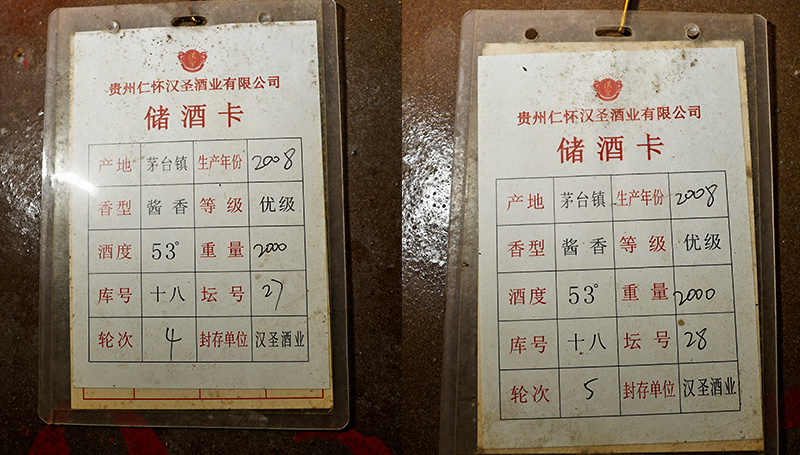 贵州仁怀汉圣酒业有限公司
储酒卡
产地 茅台镇 生产年份 2008
香型 酱香 等级 优级
酒度 53° 重量 2000
库号 十八 坛号 27
轮次 4 封存单位 汉圣酒业
贵州仁怀汉圣酒业有限公司
储酒卡
产地 茅台镇 生产年份 2008
香型 酱香 等级 优级
酒度 53° 重量 2000
库号 十八 坛号 28
轮次 5 封存单位 汉圣酒业